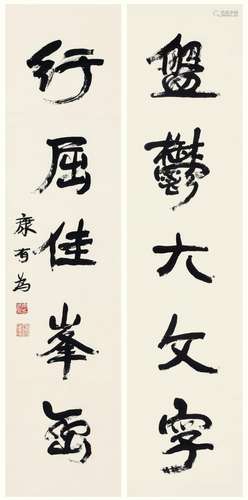 盤鬱大文字
行屈佳峯
康有為